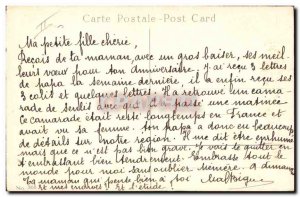 Carte Postale-Post Card
Ma petite fille chérie,
Reçois de ta maman, avec un gros baiser, ses meil-
leurs vœux pour ton anniversaire. J'ai reçu 3 lettres
de papa la semaine dernière, il a enfin reçu ses
3 colis et quelques lettres. Il a retrouvé un cama-
rade de Senlis avec qui il a passé une matinée
Ce camarade était resté longtemps en France et
avait vu sa femme. Ton papa a donc eu beaucoup
de détails sur notre région. Il me dit être enrhumé
mais que ce n'est pas bien grave. Je vais te quitter en
t'embrassant bien tendrement. Embrasse tout le
monde pour moi sans oublier mémère. A dimanche
Ta maman qui pense bien à toi
et l'étude.